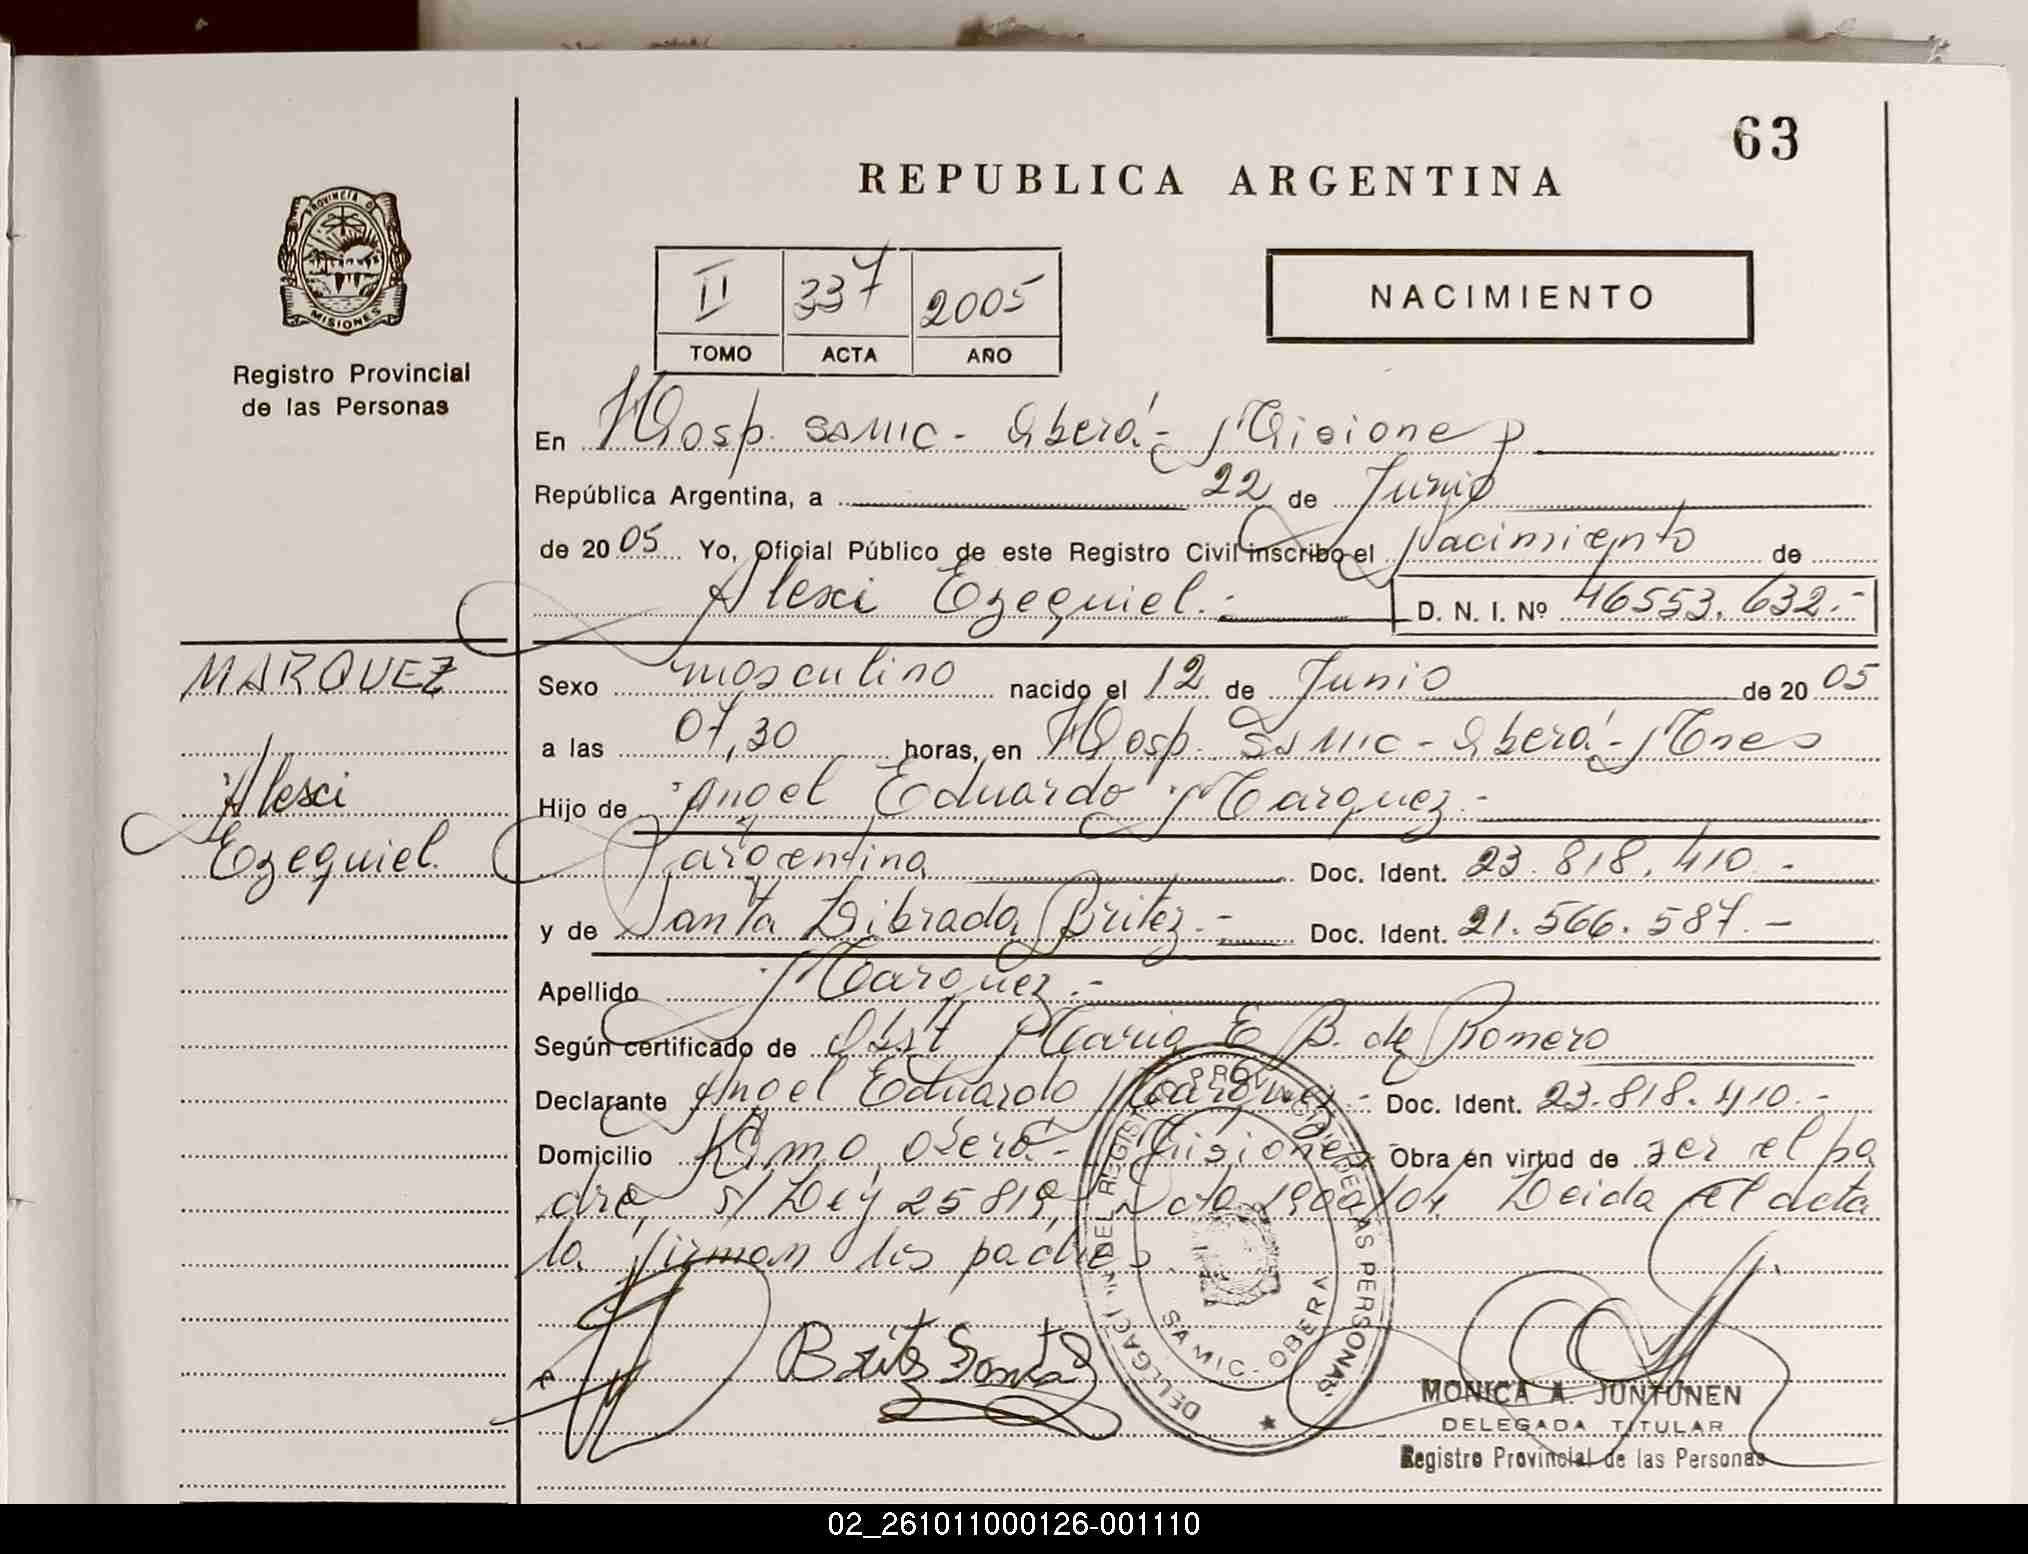 63
REPUBLICA ARGENTINA
PROVINCIA DE
MISIONES
Registro Provincial
de las Personas
II 337 2005
TOMO ACTA AÑO
NACIMIENTO
En Hosp. SAMIC - Oberá - Misiones
República Argentina, a 22 de Junio
de 2005 Yo, Oficial Público de este Registro Civil inscribo el Nacimiento de
Alexi Ezequiel.- D. N. I. Nº 46553.632.-
MARQUEZ
Alexi
Ezequiel.
Sexo masculino nacido el 12 de Junio de 2005
a las 07,30 horas, en Hosp. SAMIC - Oberá - Mnes
Hijo de Angel Eduardo Marquez.-
argentina Doc. Ident. 23.818.410.-
y de Santa Librada Britez.- Doc. Ident. 21.566.587.-
Apellido Marquez.-
Según certificado de Obst Maria E B. de Romero
Declarante Angel Eduardo Marquez.- Doc. Ident. 23.818.410.-
Domicilio Oberá - Misiones Obra en virtud de ser el pa
dre, s/ Ley 25819, Dcto 1900/04. Leida el acta
la firman los padres
Britez Santa
DELEGACION DEL REGISTRO PROVINCIAL DE LAS PERSONAS
SAMIC - OBERA
MONICA A. JUNTUNEN
DELEGADA TITULAR
Registro Provincial de las Personas
02_261011000126-001110